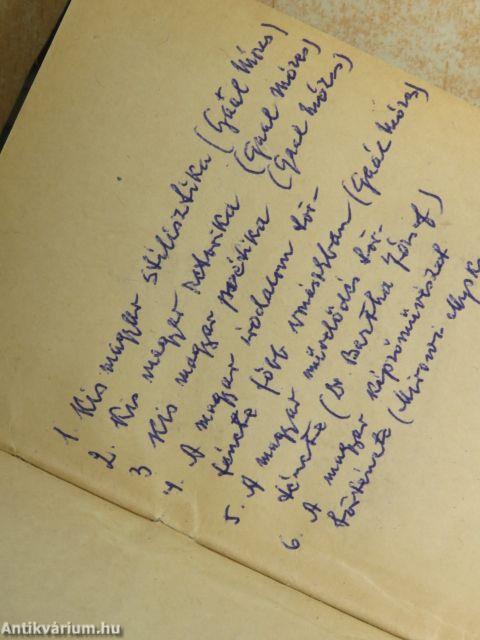 1. Kis magyar stilisztika (Gaal Mózes)
2. Kis magyar retorika (Gaal Mózes)
3 Kis magyar poétika (Gaal Mózes)
4. A magyar irodalom tör-
ténete főbb vonásokban (Gaál Mózes)
5. A magyar művelődés tör-
ténete (Dr. Bartha József)
6. A magyar képzőművészet
története (Mirovszky
Antikvárium.hu